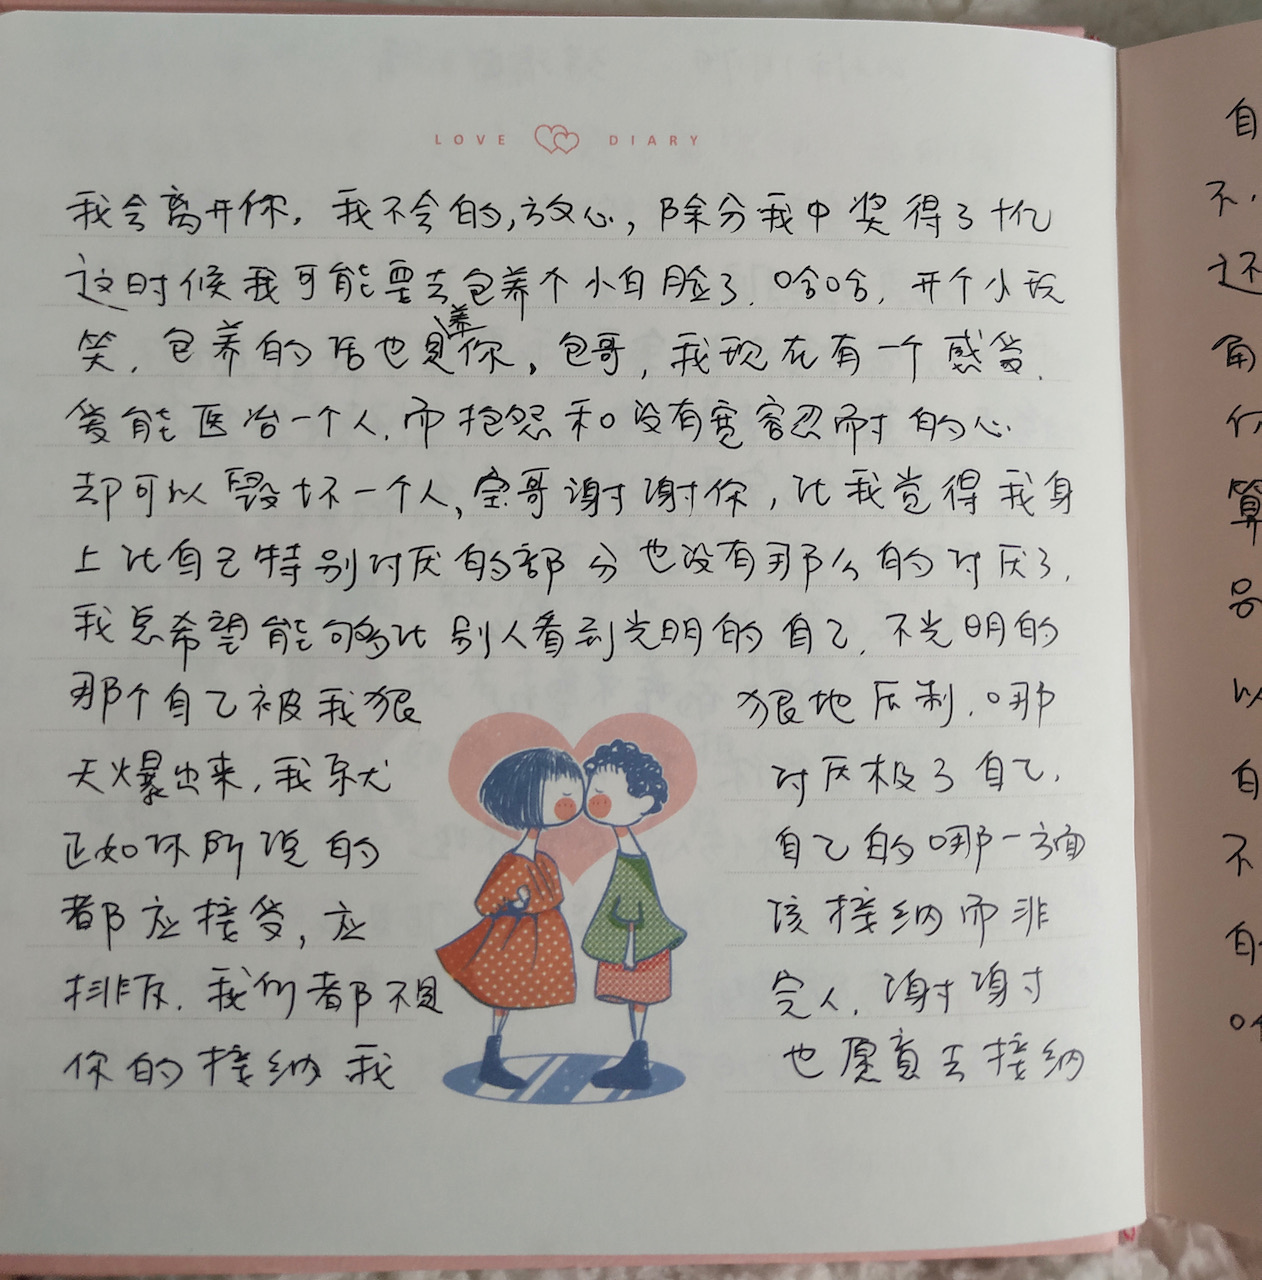 LOVE DIARY
我会离开你，我不会的，放心，除分我中奖得了十亿
这时候我可能要去包养个小白脸了，哈哈，开个小玩
笑，包养的话也是养你，包哥，我现在有一个感受，
爱能医治一个人，而抱怨和没有宽容忍耐的心
却可以毁坏一个人，宝哥谢谢你，让我觉得我身
上让自己特别讨厌的部分也没有那么的讨厌了，
我总希望能够让别人看到光明的自己，不光明的
那个自己被我狠狠地压制，哪
天爆出来，我就讨厌极了自己，
正如你所说的自己的哪一方面
都应接受，应该接纳而非
排斥，我们都不是完人，谢谢
你的接纳我也愿意去接纳
自
不，
还
角
们
算
另
以
自
不
自
哈